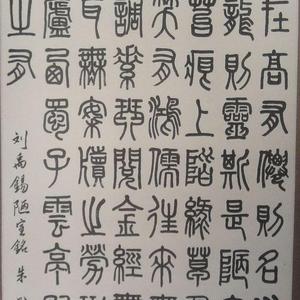 在高有僊則名
龍則靈斯是陋
苔痕上階綠草
笑有鴻儒往來
調素琴閱金經無
耳無案牘之勞形
廬西蜀子雲亭
之有
刘禹錫陋室銘 朱